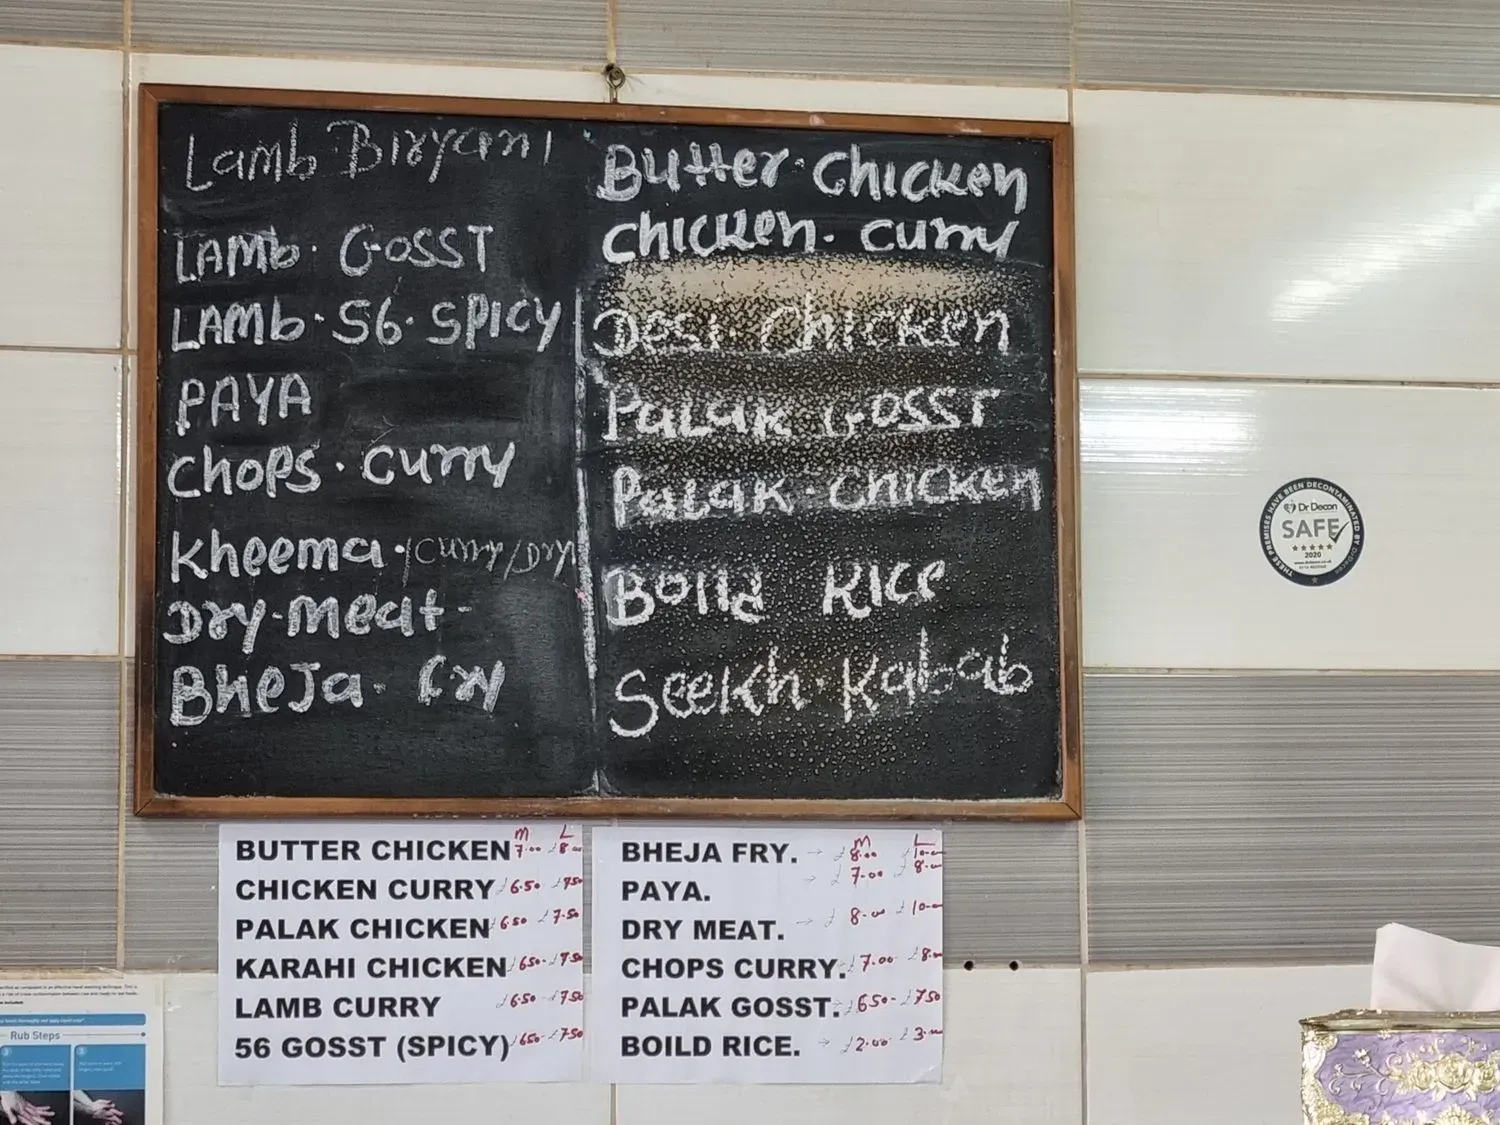 Lamb Biryani
LAMB. GOSST
LAMB. 56. SPICY
PAYA
CHOPS. CURRY
Kheema. /CURRY/DRY
Dry-meat-
BHEJA- fry
Butter. Chicken
Chicken. Curry
Desi. Chicken
PALAK GOSST
PALAK. Chicken
Boild RICE
Seekh. Kabab
M L
BUTTER CHICKEN 7.00 £8.00
CHICKEN CURRY £6.50 £7.50
PALAK CHICKEN £6.50 £7.50
KARAHI CHICKEN £6.50- £7.50
LAMB CURRY £6.50 - £7.50
56 GOSST (SPICY) £6.50- £7.50
M L
BHEJA FRY. → £8.00 £10.00
PAYA. → £7.00 £8.00
DRY MEAT. → £8.00 £10.00
CHOPS CURRY. £7.00- £8.00
PALAK GOSST. £6.50- £7.50
BOILD RICE. → £2.00 £3.00
THESE PREMISES HAVE BEEN DECONTAMINATED BY
Dr Decon
SAFE
2020
Rub Steps